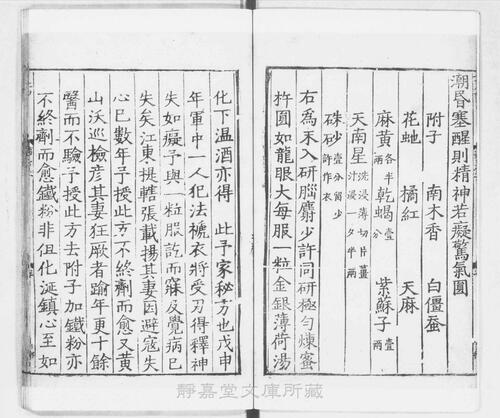 潮昏塞醒則精神若癡驚氣圓
附子 南木香 白僵蚕
花虵 橘紅 天麻
麻黃各半兩 乾蝎壹兩 紫蘇子壹兩
天南星洗浸薄切片薑汁浸一夕半兩
硃砂壹分留少許作衣
右為末入研腦麝少許同研極勻煉蜜
杵圓如龍眼大每服一粒金銀薄荷湯
化下溫酒亦得 此予家秘方也戊申
年軍中一人犯法褫衣將受刃得釋神
失如癡予與一粒服訖而寐及覺病已
失矣江東提轄張載揚其妻因避寇失
心已數年予授此方不終劑而愈又黃
山沃巡檢彥其妻狂厥者踰年更十餘
醫而不驗予授此方去附子加鐵粉亦
不終劑而愈鐵粉非但化涎鎮心至如
靜嘉堂文庫所藏